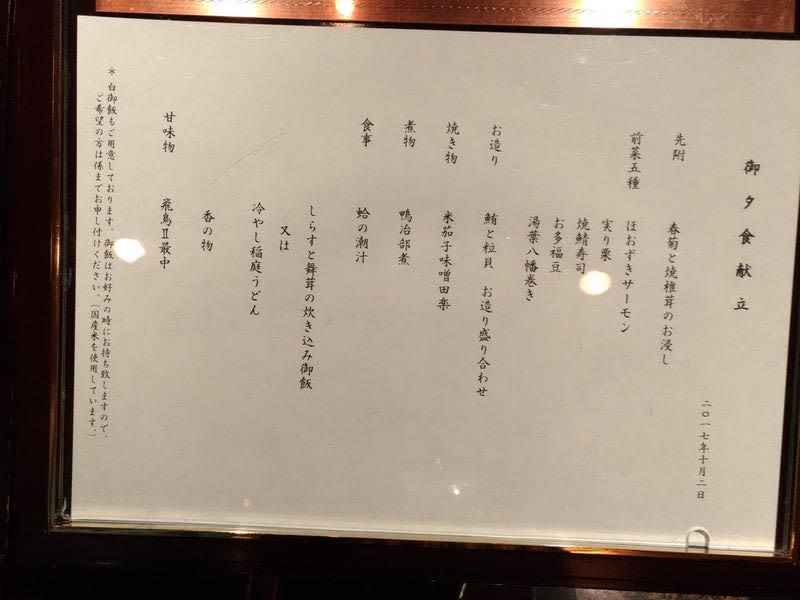 御夕食献立
二〇一七年十月二日
先附　春菊と焼椎茸のお浸し
前菜五種　ほおずきサーモン
実り栗
焼鯖寿司
お多福豆
湯葉八幡巻き
お造り　鮪と粒貝　お造り盛り合わせ
焼き物　米茄子味噌田楽
煮物　鴨治部煮
食事　蛤の潮汁
しらすと舞茸の炊き込み御飯
又は
冷やし稲庭うどん
香の物
甘味物　飛鳥Ⅱ最中
＊白御飯もご用意しております。御飯はお好みの時にお持ち致しますので、
ご希望の方は係までお申し付けください。（国産米を使用しています。）